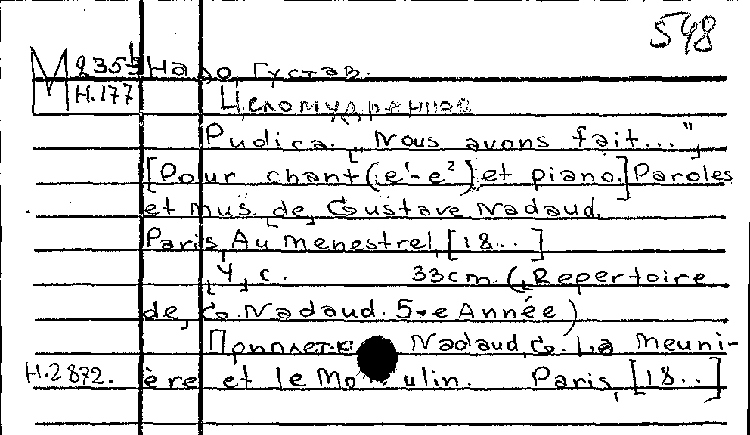 548
М 235 1/3 Надо Густав.
Н.177 Целомудренная
Pudica. „Nous avons fait..."
[Pour chant (e¹-e²) et piano.] Paroles
et mus. de Gustave Nadaud.
Paris, Au Menestrel, [18..]
4 c. 33cm. (Repertoire
de G. Nadaud. 5-e Année)
Приплет. к Nadaud, G. La meuni-
Н.2872. ère et le Moulin. Paris, [18..]